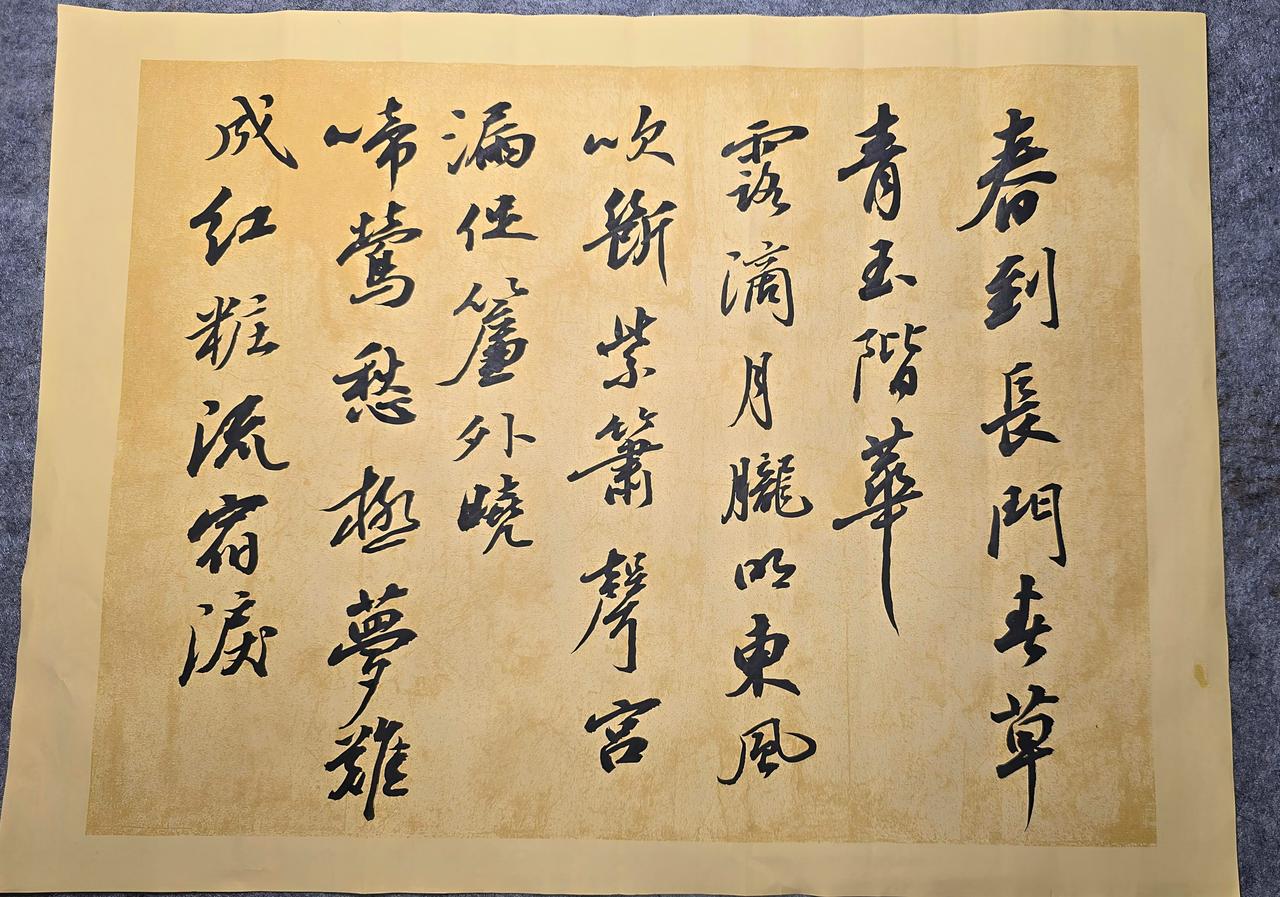 春到長門春草
青玉階華
露滴月朧明東風
吹斷紫簫聲宮
漏促簾外曉
啼鶯愁極夢難
成红粧流宿淚